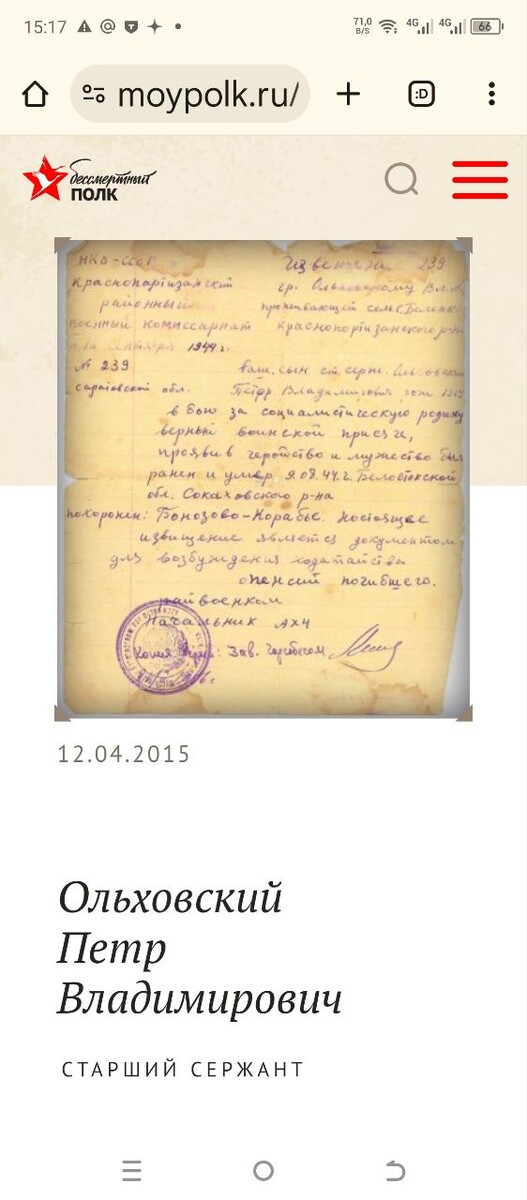 15:17
71,0 B/S
4G
4G
66
moypolk.ru/
:D
бессмертный
ПОЛК
НКО-СССР Извещение 239
Краснопартизанский гр. Ольховскому Влад
районный проживающей село Беленка
Военный комиссариат Краснопартизанского р-на
сентября 1944 г.
№ 239 Ваш, сын ст. серж. Ольховский
Саратовской обл. Петр Владимирович
в бою за социалистическую родину
верный воинской присяге,
проявив геройство и мужество был
ранен и умер 9.08.44 г. Белостокской
обл. Сокаховского р-на
похоронен: Бонозово-Корабье. Настоящее
извищение является документом
для возбуждения ходатайства
о пенсий погибшего.
райвоенком
Начальник АХЧ
Копия : Зав.
12.04.2015
Ольховский
Петр
Владимирович
СТАРШИЙ СЕРЖАНТ